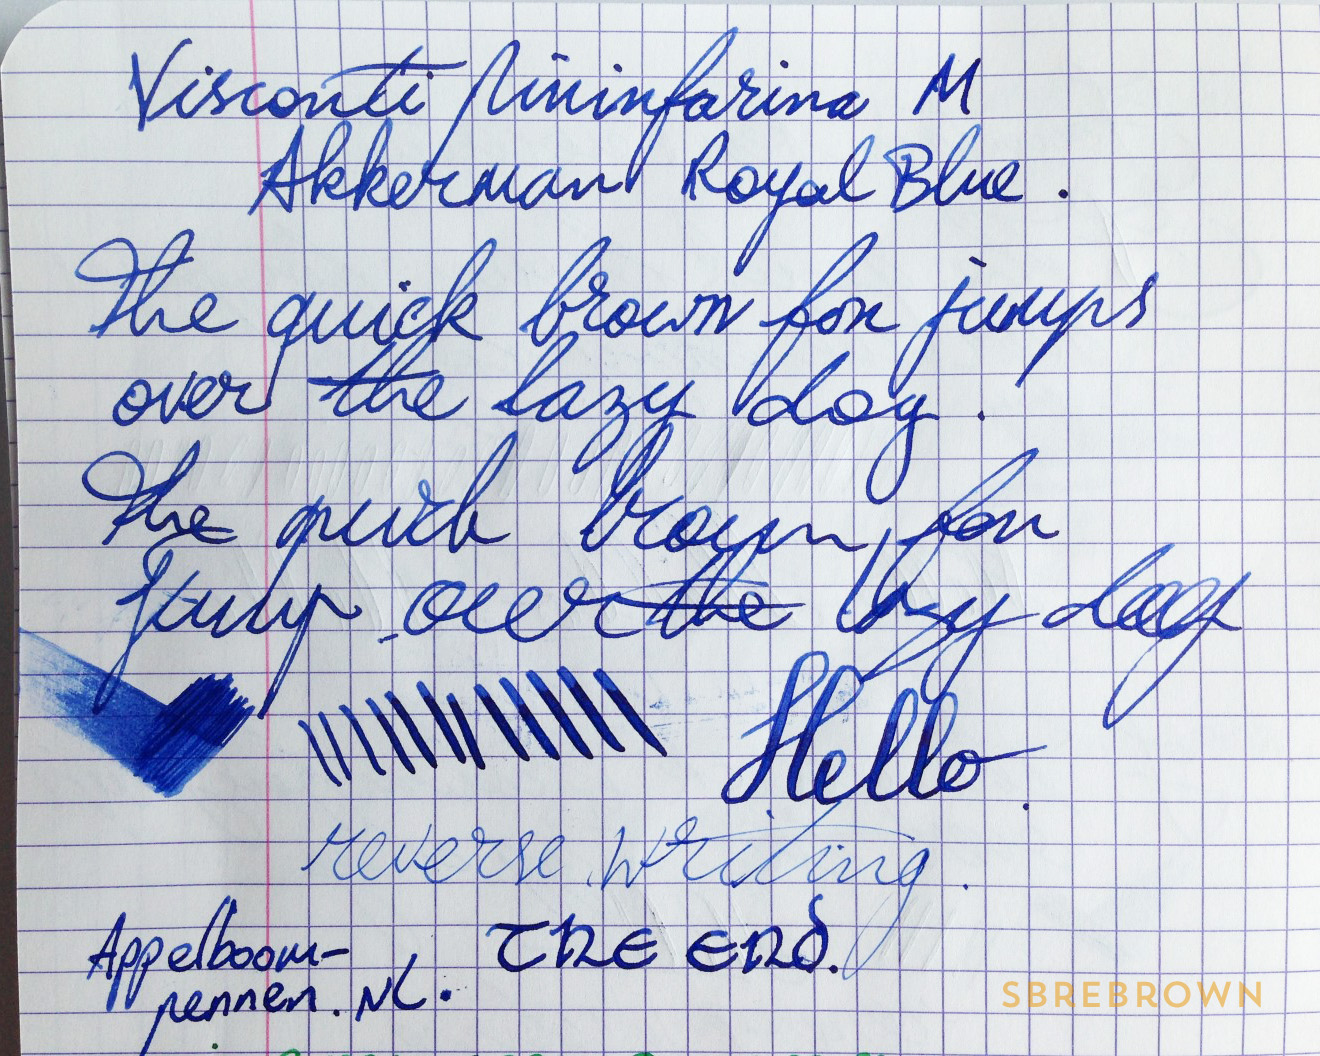 Visconti Pininfarina M
Akkerman Royal Blue.
The quick brown fox jumps
over the lazy dog.
The quick brown fox
jump over the lazy dog
Hello.
reverse writing.
Appelboom-
pennen.NL.
THE END.
SBREBROWN